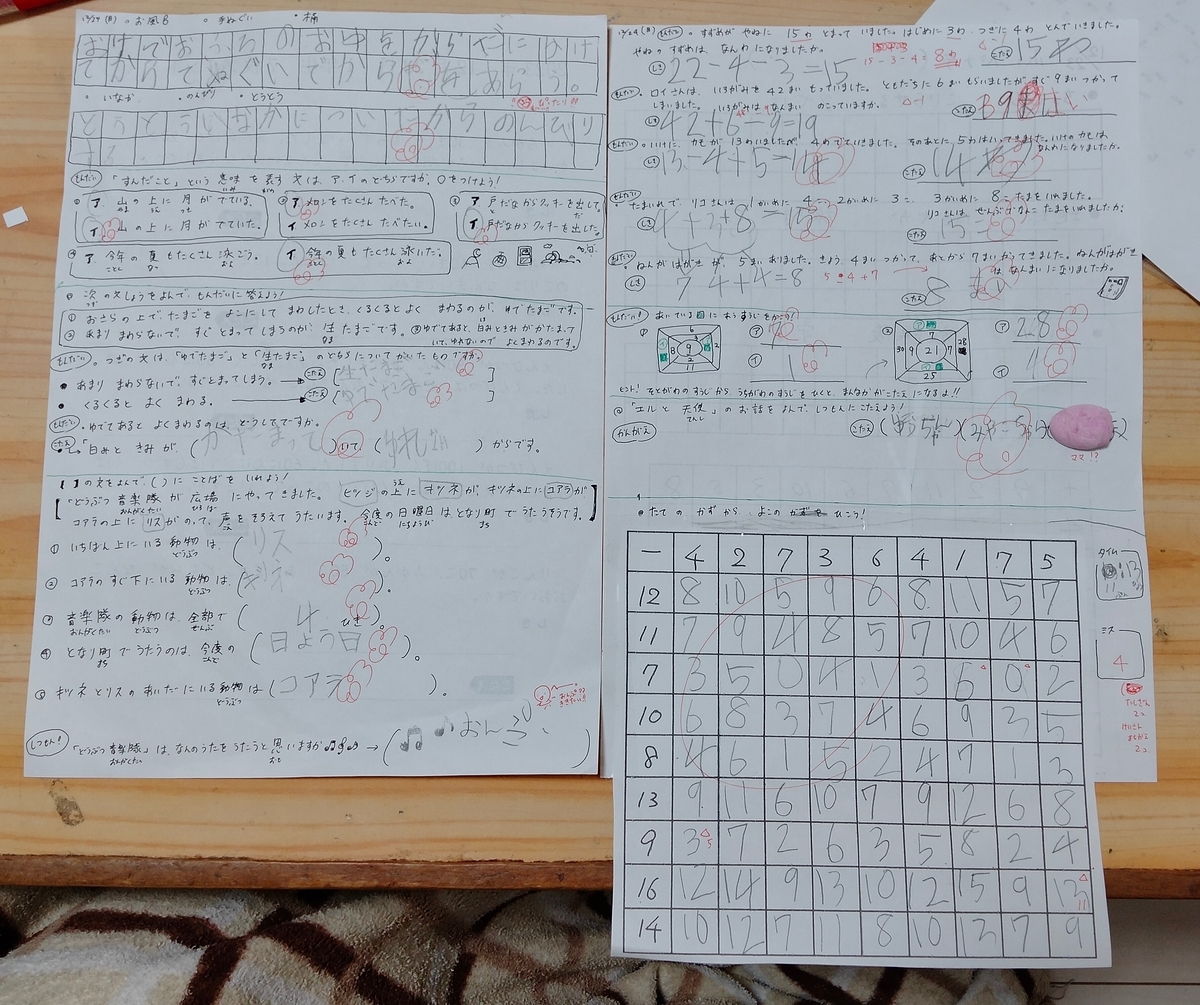 12/29(月) ・お風呂 ・手ぬぐい ・桶
おけでおふろのおゆをからだにかけ
てからてぬぐいでからだをあらう。
・いなか ・のんびり ・とうとう
とうとういなかについたからのんびり
する
もんだい 「すんだこと」という意味を表す文は、ア、イのどちらですか。○をつけよう!
① ア 山の上に月がでている。
イ 山の上に月がでていた。
② ア メロンをたくさんたべた。
イ メロンをたくさんたべたい。
③ ア 戸だなからクッキーを出して。
イ 戸だなからクッキーを出した。
④ ア 今年の夏もたくさん泳ごう。
イ 今年の夏もたくさん泳いだ。
◎ 次の文しょうをよんで、もんだいに答えよう!
① おさらの上で、たまごをよこにしてまわしたとき、くるくるとよくまわるのが、ゆでたまごです。
② あまりまわらないで、すぐとまってしまうのが、生たまごです。③ゆでてあると、白みときみがかたまって
いて、ゆれないのでよくまわるのです。
もんだい つぎの文は、「ゆでたまご」と「生たまご」のどちらについてかいたものですか。
● あまりまわらないで、すぐとまってしまう。→こたえ[生たまご]
● くるくるとよくまわる。→こたえ[ゆでたまご]
もんだい ゆでてあるとよくまわるのは、どうしてですか。
こたえ 「白みときみが、(かたまって)いて、( )からです。
【 】の文をよんで、( )にことばをいれよう!
「どうぶつ音楽隊が広場にやってきました。ヒツジの上にキツネが、キツネの上にコアラが
コアラの上にリスがのって、声をそろえてうたいます。今度の日曜日はとなり町でうたうそうです。
① いちばん上にいる動物は、(リス)。
② コアラのすぐ下にいる動物は、(キツネ)。
③ 音楽隊の動物は、全部で(4ひき)。
④ となり町でうたうのは、今度の(日よう日)。
⑤ キツネとリスのあいだにいる動物は(コアラ)。
しつもん! 「どうぶつ音楽隊」は、なんのうたをうたうと思いますか→( )
12/29(月) もんだい ・すずめがやねに15わとまっていました。はじめに3わ、つぎに4わとんでいきました。
やねのすずめは、なんわになりましたか。
15-3-4=8わ
しき 22-4-3=15
こたえ 15わ
もんだい ・ロイさんは、いろがみを42まいもっていました。ともだちに6まいもらいましたが、すぐ9まいつかって
しまいました。いろがみはなんまいのこっていますか。
しき 42+6-9=19
もんだい ・いけにカモが13わいましたが、4わでていきました。そのあとに、5わはいってきました。いけのカモは、
なんわになりましたか。
しき 13-4+5=14
こたえ 14わ
もんだい ・たまいれで、リコさんは1かいめに4こ、2かいめに3こ、3かいめに8こたまをいれました。
リコさんは、ぜんぶでなんこたまをいれましたか?
しき 4+3+8=15
こたえ 15こ
もんだい ・ねんがはがきが、5まいありました。きょう、4まいつかって、あとから7まいかってきました。ねんがはがき
はなんまいになりましたか。
しき 7 4+4=8
5-4+7
こたえ 8まい
もんだい! あいている□に入るすうじをかこう!
① 6 3 8 9 2 2 11
ア 7
イ 1
② 7 30 9 21 7 28 25
ア 28
イ 4
ヒント! そとがわのすうじからうちがわのすうじをひくと、まんなかがこたえになるよ!!
◎「エルと天使」のお話をよんで、しつもんにこたえよう!
かんがえ
◎ たてのかずから、よこのかずをひこう!
タイム
ー 4 2 7 3 6 4 1 7 5
12 8 10 5 9 6 8 11 5 7
11 7 9 4 8 5 7 10 4 6
7 3 5 0 4 1 3 6 0 2
10 6 8 3 7 4 6 9 3 5
8 4 6 1 5 2 4 7 1 3
13 9 11 6 10 7 9 12 6 8
9 3 5 7 2 6 3 5 8 2 4
16 12 14 9 13 10 12 15 9 13 11
14 10 12 7 11 8 10 13 7 9
ミス
4